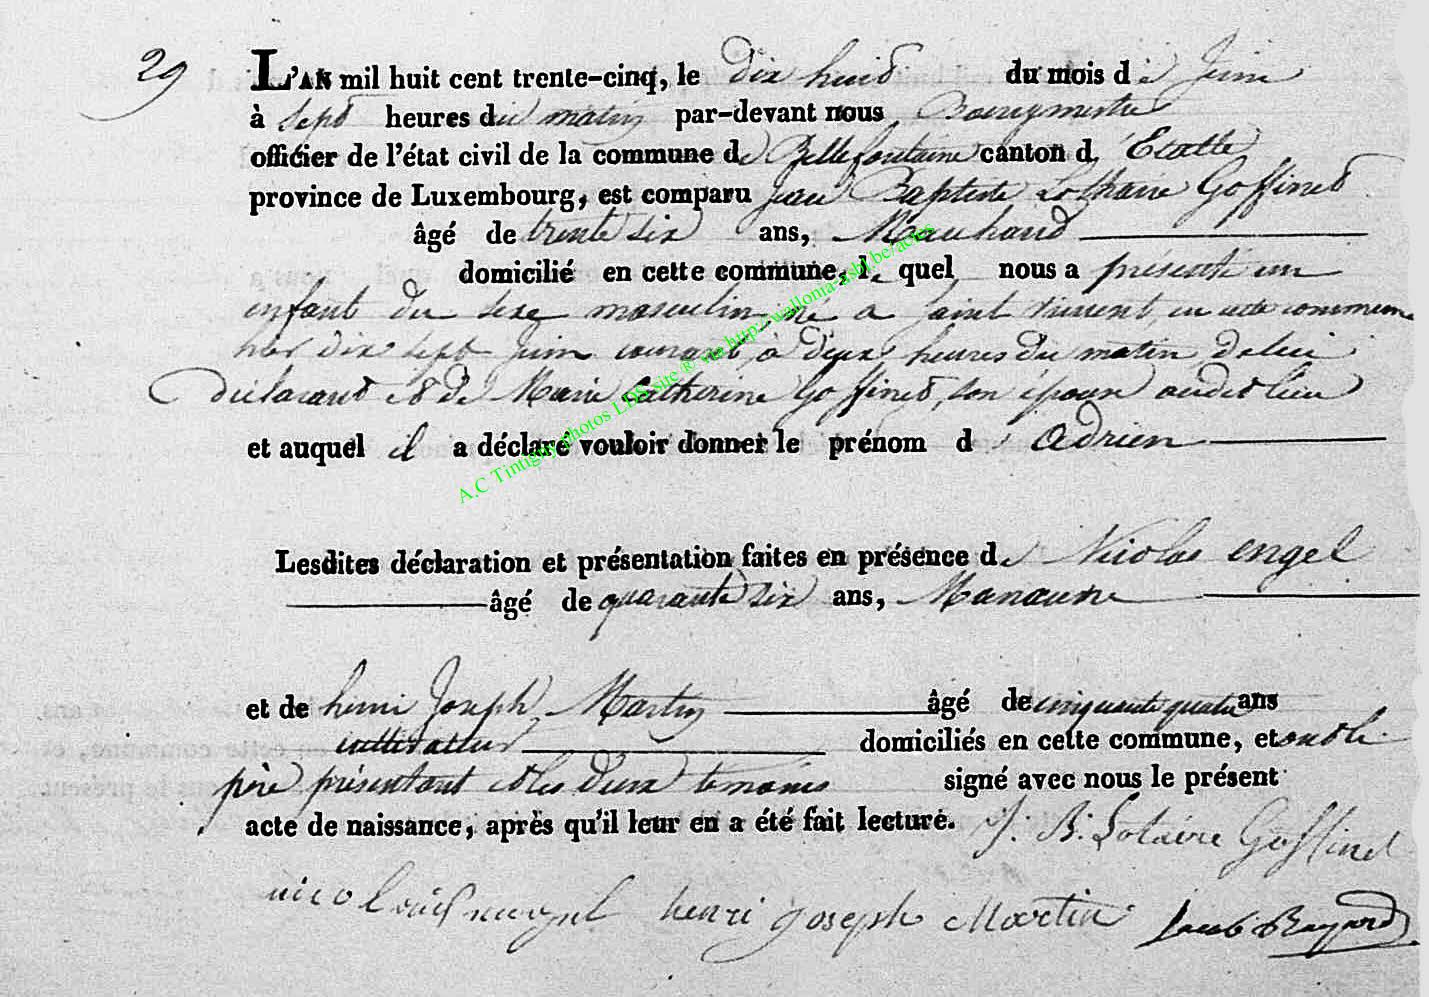 29
L'AN mil huit cent trente-cinq, le dix huit du mois de Juin
à sept heures du matin par-devant nous Bourgmestre
officier de l'état civil de la commune de Bellefontaine canton d'Etalle
province de Luxembourg, est comparu jean Baptiste Lothaire Goffinet
âgé de trente six ans, Marchand
domicilié en cette commune, le quel nous a présenté un
enfant du sexe masculin, né a Saint Vincent, en cette commune
hier dix sept juin courant, à deux heures du matin de lui
déclarant et de Marie Catherine Goffinet, son épouse audit lieu
et auquel il a déclaré vouloir donner le prénom d' Adrien
Lesdites déclaration et présentation faites en présence de Nicolas engel
âgé de quarante six ans, Manœuvre
et de henri Joseph Martin âgé de cinquante quatre ans
cultivateur domiciliés en cette commune, et ont le
père présentant et les deux temoins signé avec nous le présent
acte de naissance, après qu'il leur en a été fait lecture. J. B. Lotaire Goffinet
henri joseph Martin Jacob
A.C Tintigny photos LDS site ® via http://wallonia-asbl.be/actes